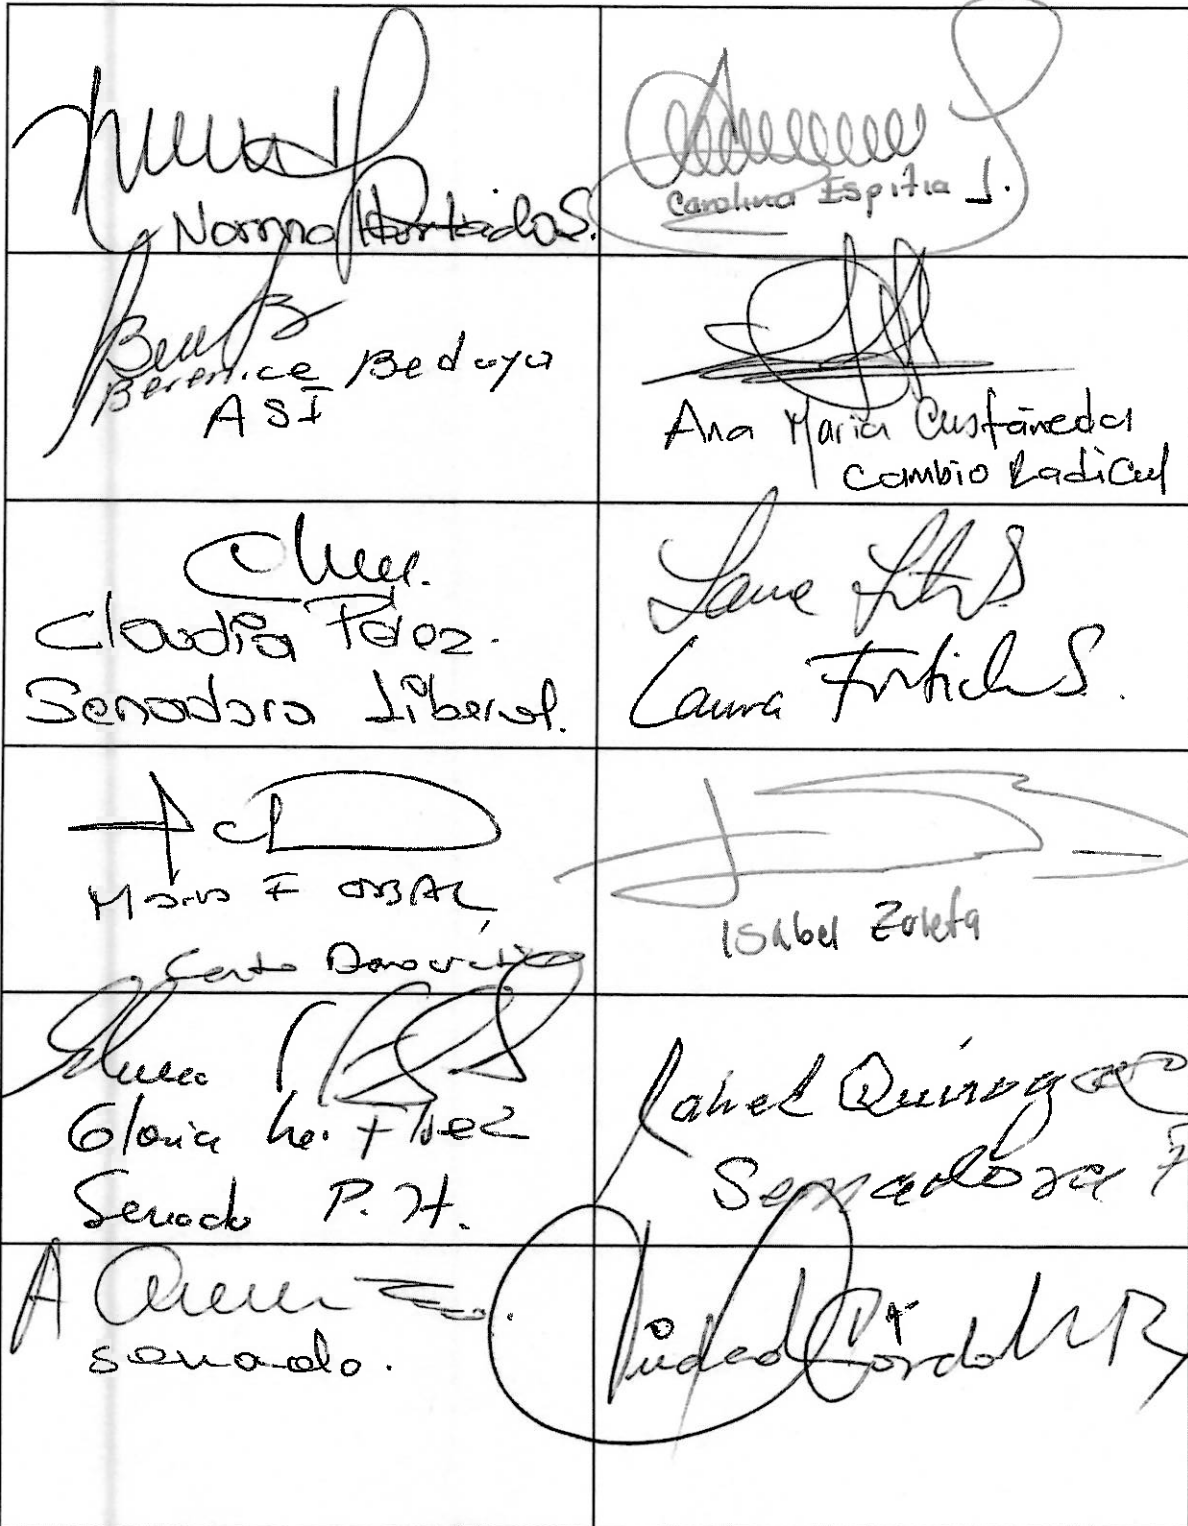 Norma Hurtado S.
Carolina Espitia J.
Berenice Bedoya
ASI
Ana Maria Castañeda
Cambio Radical
Claudia Pérez.
Senadora Liberal.
Laura Fortich S.
María F CABAL
Isabel Zuleta
Gloria Flórez
Senado P.H.
Jahel Quiroga
Senadora
A
senado.
Piedad Córdoba R